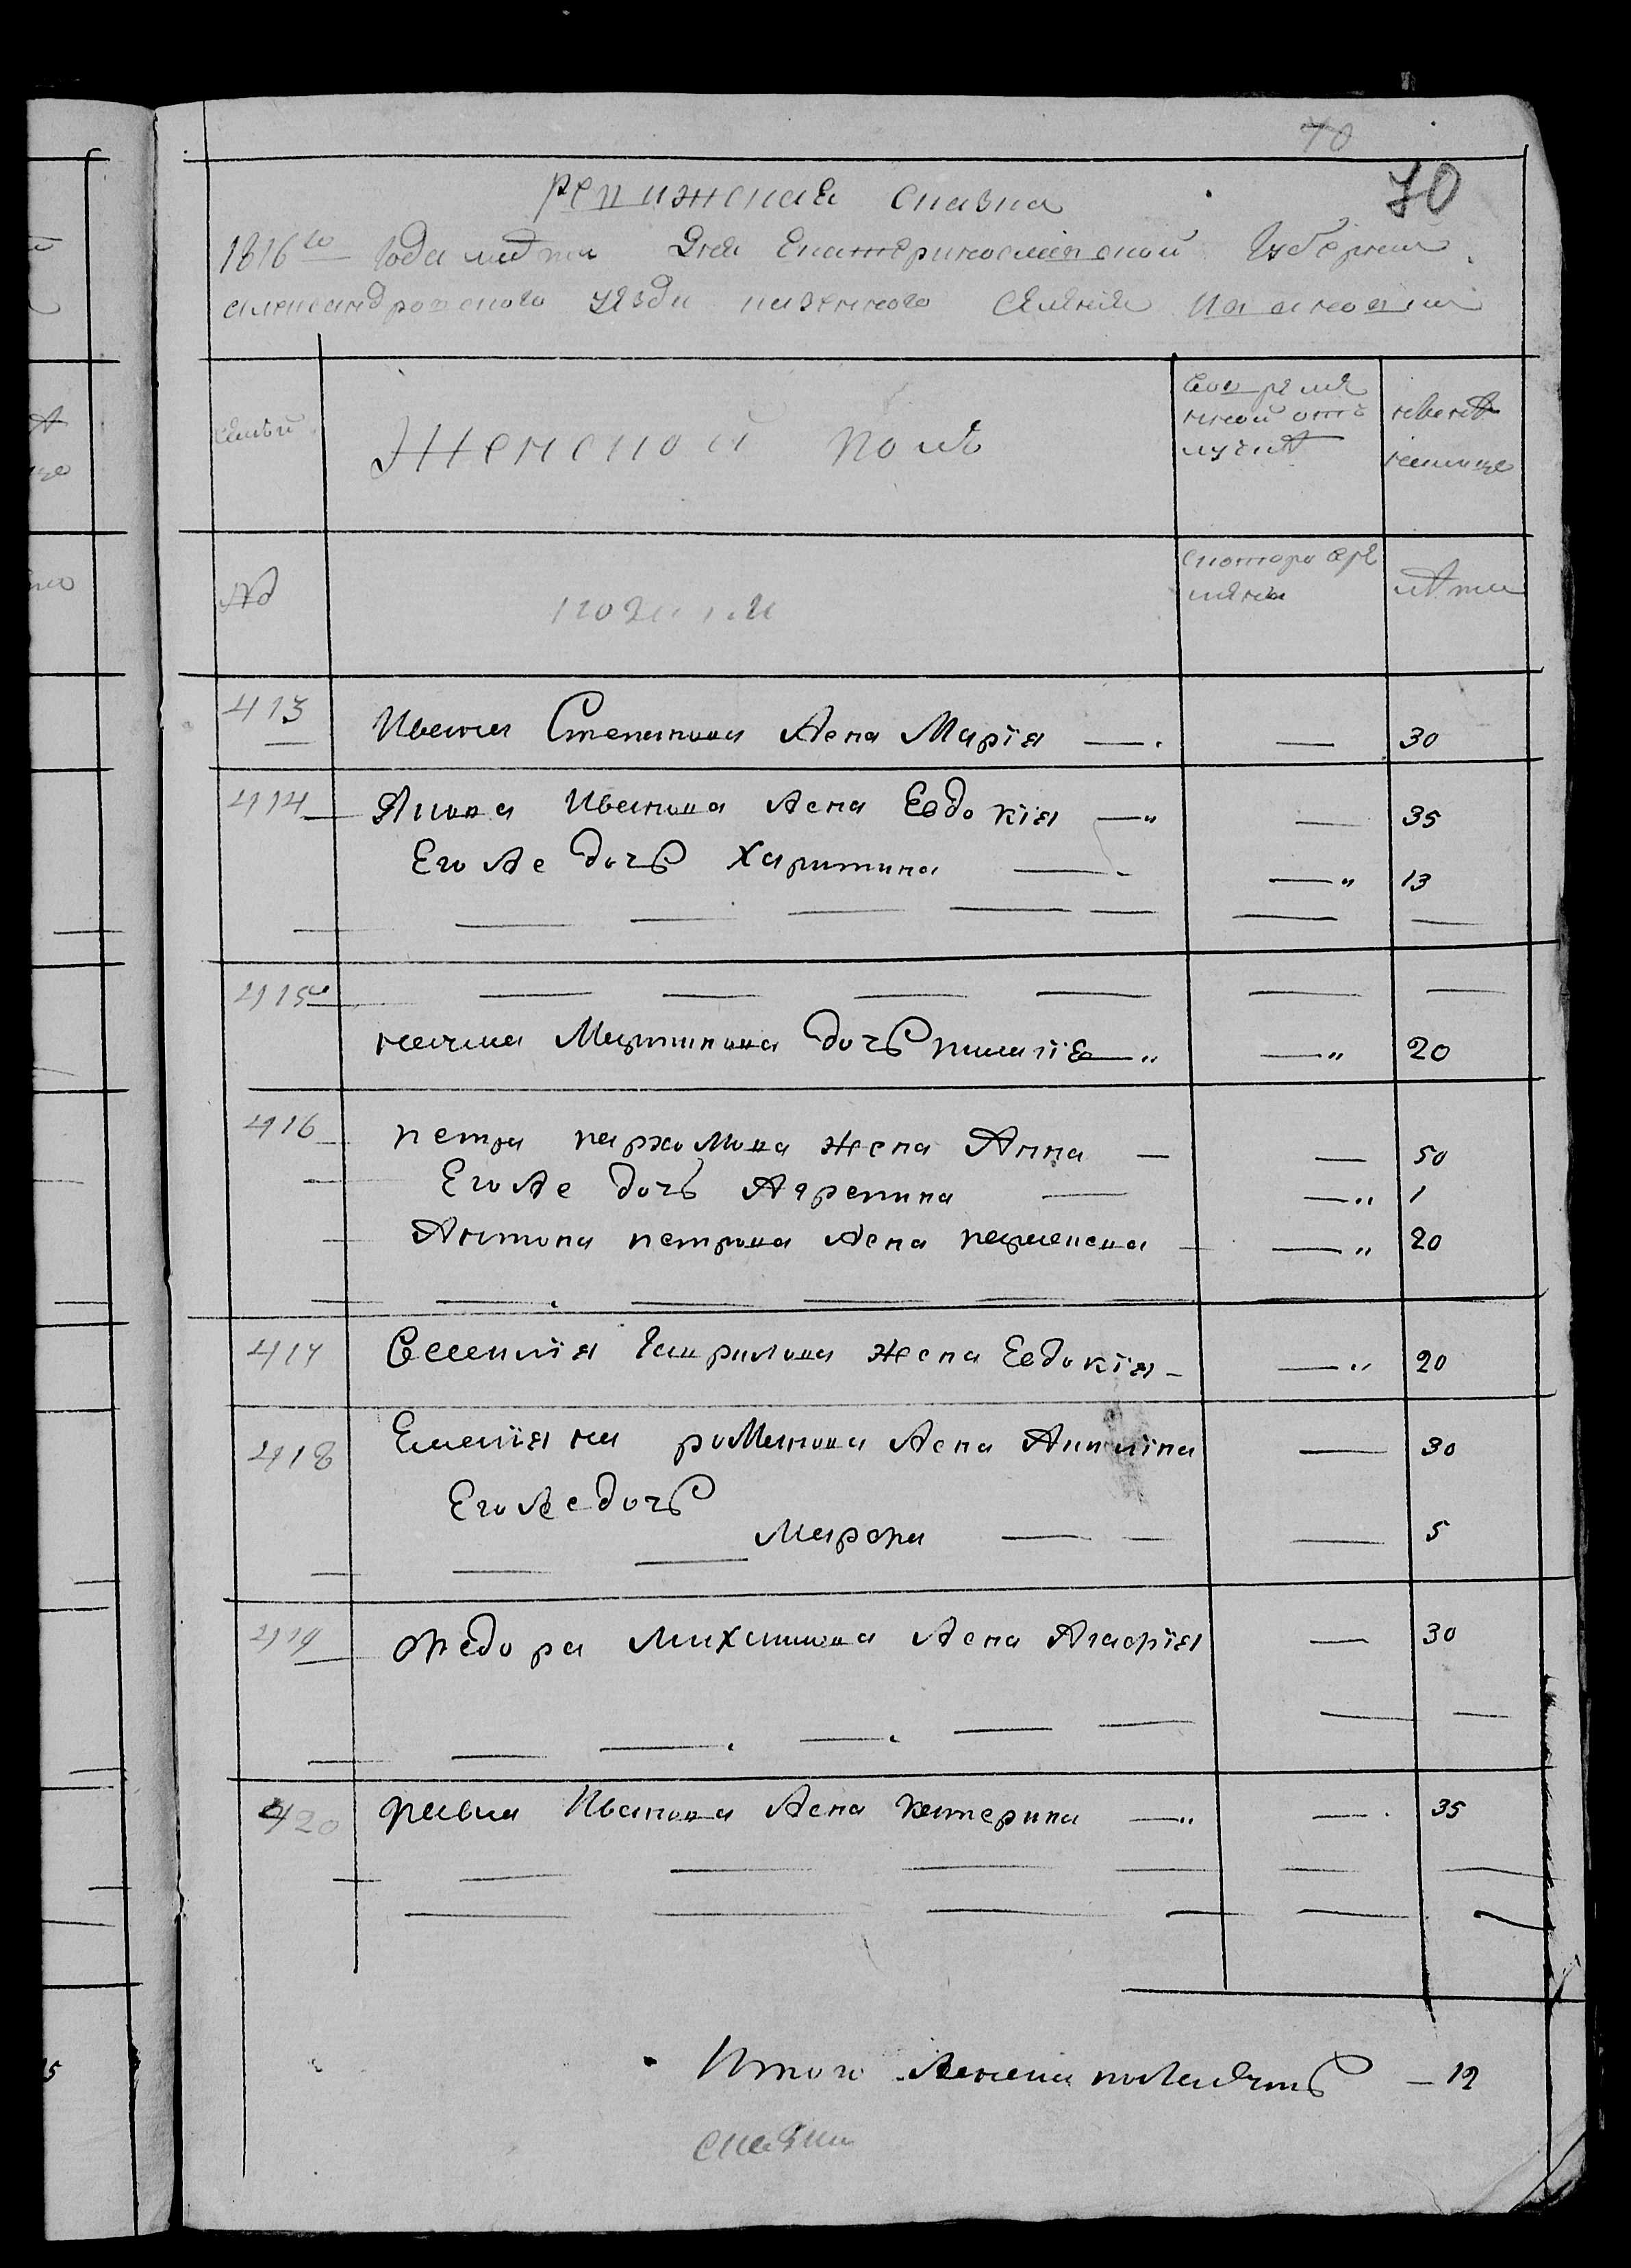 70
70
ревижская скаска
1816го Года марта Дня Екатеринославской Губернии
александровского уезда казенного селения
семьи
Женской пол
Во временной отлучке
ныне на лицо
№
с которого времени
лета
413 Ивана Степанова жена Мария — — 30
414 Якова Иванова жена Евдокия — — 35
Его же дочь Харитина — — 13
415
Мартинова дочь — 20
416 петра пархомова жена Анна — — 50
Его же дочь Агрепина — — 1
Антона петрова жена параскева — — 20
417 Савелия Гаврилова жена Евдокия — — 20
418 Емелияна романова жена Акилина — 30
Его же дочь
Марфа — — 5
419 Федора михаилова жена Агафия — 30
420 савы Иванова жена катерина — — 35
Итого женска пола — 12